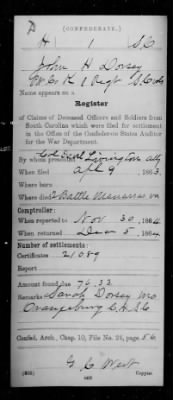 (CONFEDERATE.)
H 1 S.C.
John H Dorsey
Co K 1 Regt S.C.
Name appears on a
Register
of Claims of Deceased Officers and Soldiers from
South Carolina which were filed for settlement
in the Office of the Confederate States Auditor
for the War Department.
By whom presented Livingston atty
When filed Apl 9, 1863.
Where born
Where died Battle Manassas Va
Comptroller:
When reported to Nov 30, 1864
When returned Dec 5, 1864
Number of settlements:
Certificates 21089
Report
Amount found due 76.33
Remarks Sarah Dorsey mo
Orangeburg C.H. S.C.
Confed. Arch., Chap. 10, File No. 28, page 56
G. C. West
Copyist.